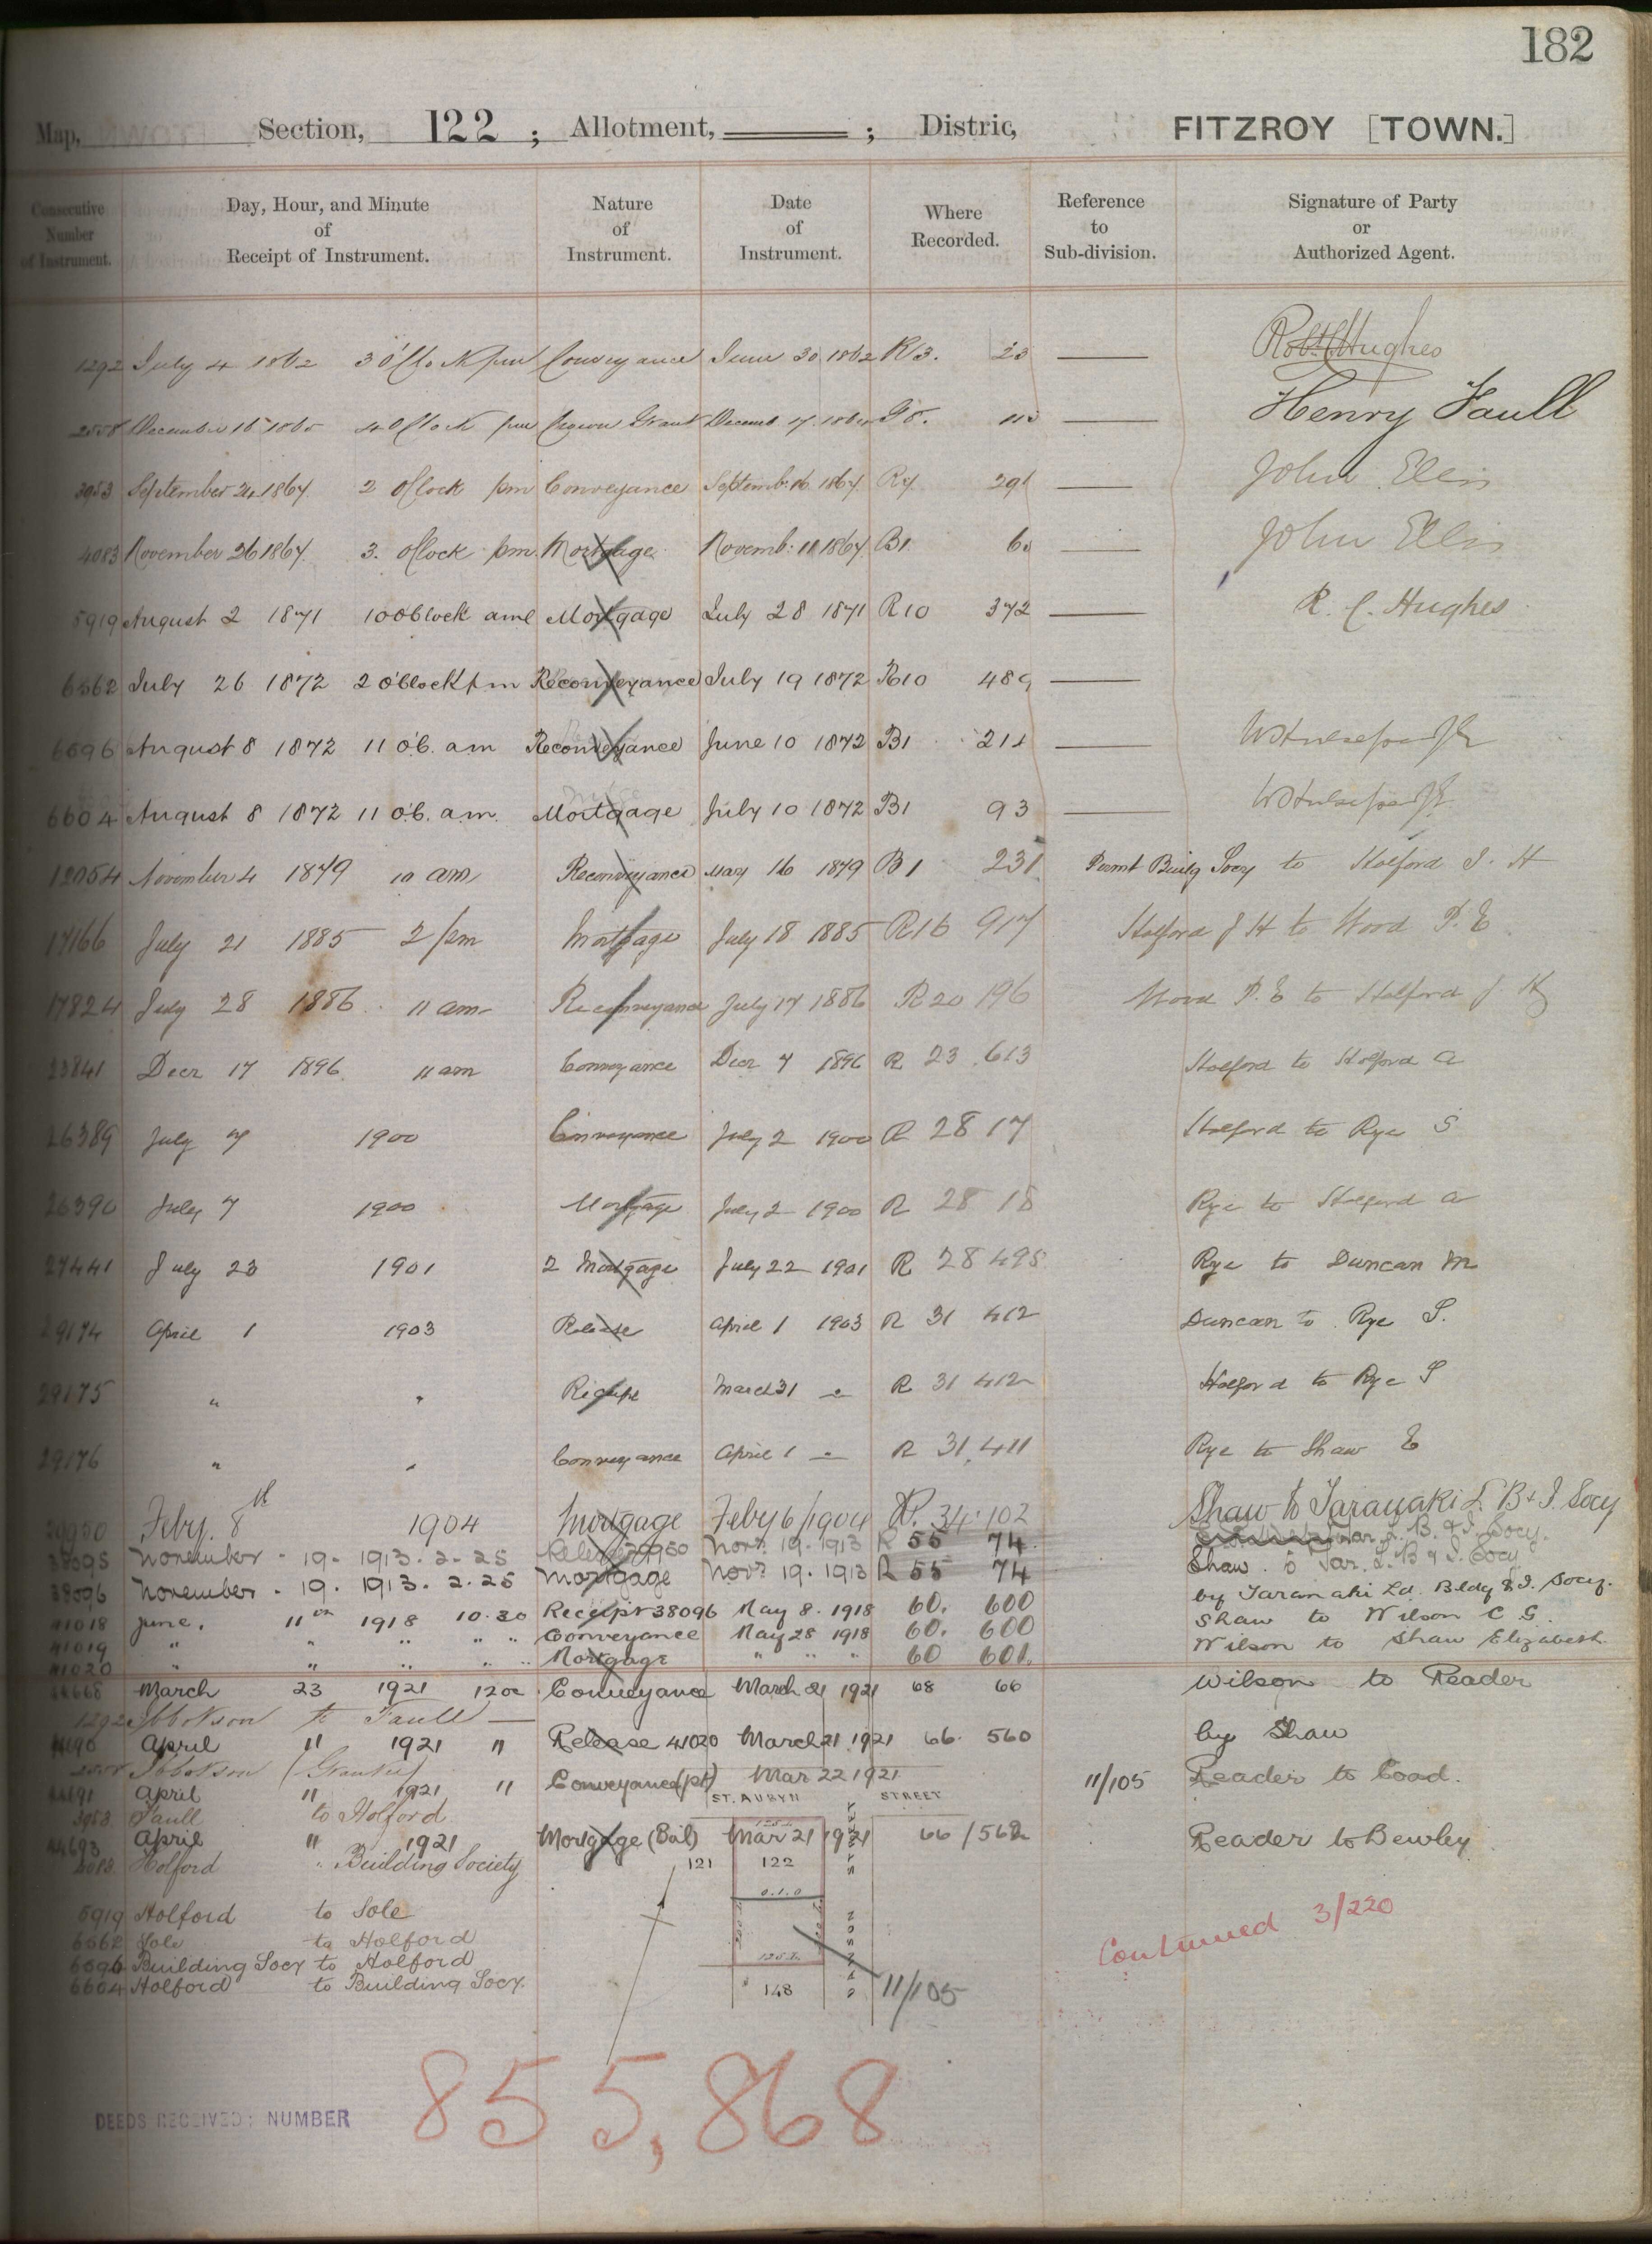 182
Map, Section, 122 ; Allotment, ; Distric, FITZROY [TOWN.]
Consecutive Number of Instrument.
Day, Hour, and Minute of Receipt of Instrument.
Nature of Instrument.
Date of Instrument.
Where Recorded.
Reference to Sub-division.
Signature of Party or Authorized Agent.
1292 July 4 1862 3 O'Clock pm Conveyance June 30 1862 R 3. 23
Crown Grant Henry Faull
3953 September 24 1867. 2 oClock pm Conveyance Septemb: 16. 1867. R7. 291 John Ellis
4083 November 26 1867. 3. oClock pm. Mortgage Novemb: 11 1867. B1. John Ellis
5919 August 2 1871 10 O'Clock am Mortgage July 28 1871 R10 372 R. C. Hughes
6562 July 26 1872 2 o'Clock pm Reconveyance July 19 1872 R10 489
6596 August 8 1872 11 o'C. am Reconveyance June 10 1872 B1
6604 August 8 1872 11 o'C. a.m. Mortgage July 10 1872 B1 93
12054 November 4 1879 10 am Reconveyance May 16 1879 B1 231 Permt Buildg Socy to Holford J. H
17166 July 21 1885 2 pm Mortgage July 18 1885 R16 917 Holford J H to Wood P. E
17824 July 28 1886 11 am Reconveyance July 17 1886 R20 196 Wood P. E to Holford J. H
23841 Decr 17 1896 11 am Conveyance Decr 7 1896 R 23 613 Holford to Holford A
26389 July 7 1900 Conveyance July 2 1900 R 28 17 Holford to Rye S
26390 July 7 1900 Mortgage July 2 1900 R 28 18 Rye to Holford A
27441 July 23 1901 2 Mortgage July 22 1901 R 28 495 Rye to Duncan M
29174 April 1 1903 Release April 1 1903 R 31 412 Duncan to Rye S.
29175 " " March 31 " R 31 412 Holford to Rye S
29176 " " Conveyance April 1 " R 31. 411 Rye to Shaw E
Feby. 8th 1904 Mortgage Feby 6/1904 R. 34. 102 Shaw to Taranaki L. B & I. Socy
38095 November - 19 - 1913. 2-25 Release Novr. 19. 1913 R 55 74.
38096 November - 19. 1913. 2.25 Mortgage Novr 19. 1913 R 55 74 Shaw. to Tar. L. B & I. Socy
41018 June. 11th 1918 10.30 Receipt 38096 May 8. 1918 60. 600 by Taranaki Ld. Bldg & I. Socy.
41019 " " " " " Conveyance May 28 1918 60. 600 Shaw to Wilson C G.
41020 " " " " " Mortgage " " " 60 601. Wilson to Shaw Elizabeth.
March 23 1921 Conveyance March 21 1921 68 66 Wilson to Reader
1292 Ibbotson to Faull
April 11 1921 11 Release 41020 March 21 1921 66. 560 by Shaw
Ibbotson (Grantee)
April 11 1921 11 Conveyance (pt) Mar 22 1921 11/105 Reader to Coad.
3953 Faull to Holford
April 11 1921 Mortgage (Bal) Mar 21 1921 66/562 Reader to Bewley
Holford " Building Society
5919 Holford to Sole
6562 Sole to Holford
6596 Building Socy to Holford
6604 Holford to Building Socy.
ST. AUBYN STREET
121
122
0.1.0
148
STREET
11/105
Continued 3/220
DEEDS RECEIVED: NUMBER 855,868